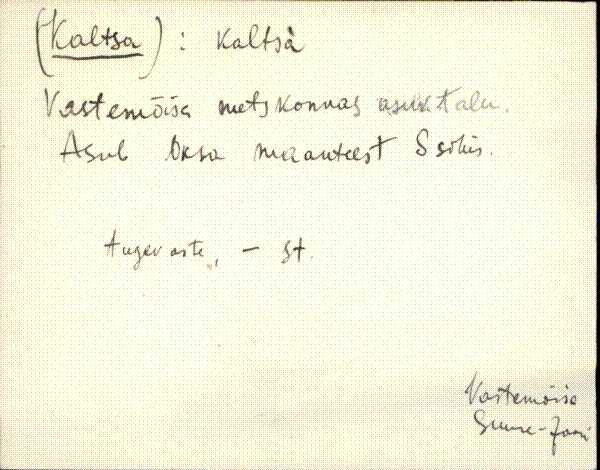 (Kaltsa) : Kaltsà
Vastemõisa metskonnas asuv talu.
Asub Oksa maanteest S sihis.
– st.
Vastemõisa
Suure-Jaani